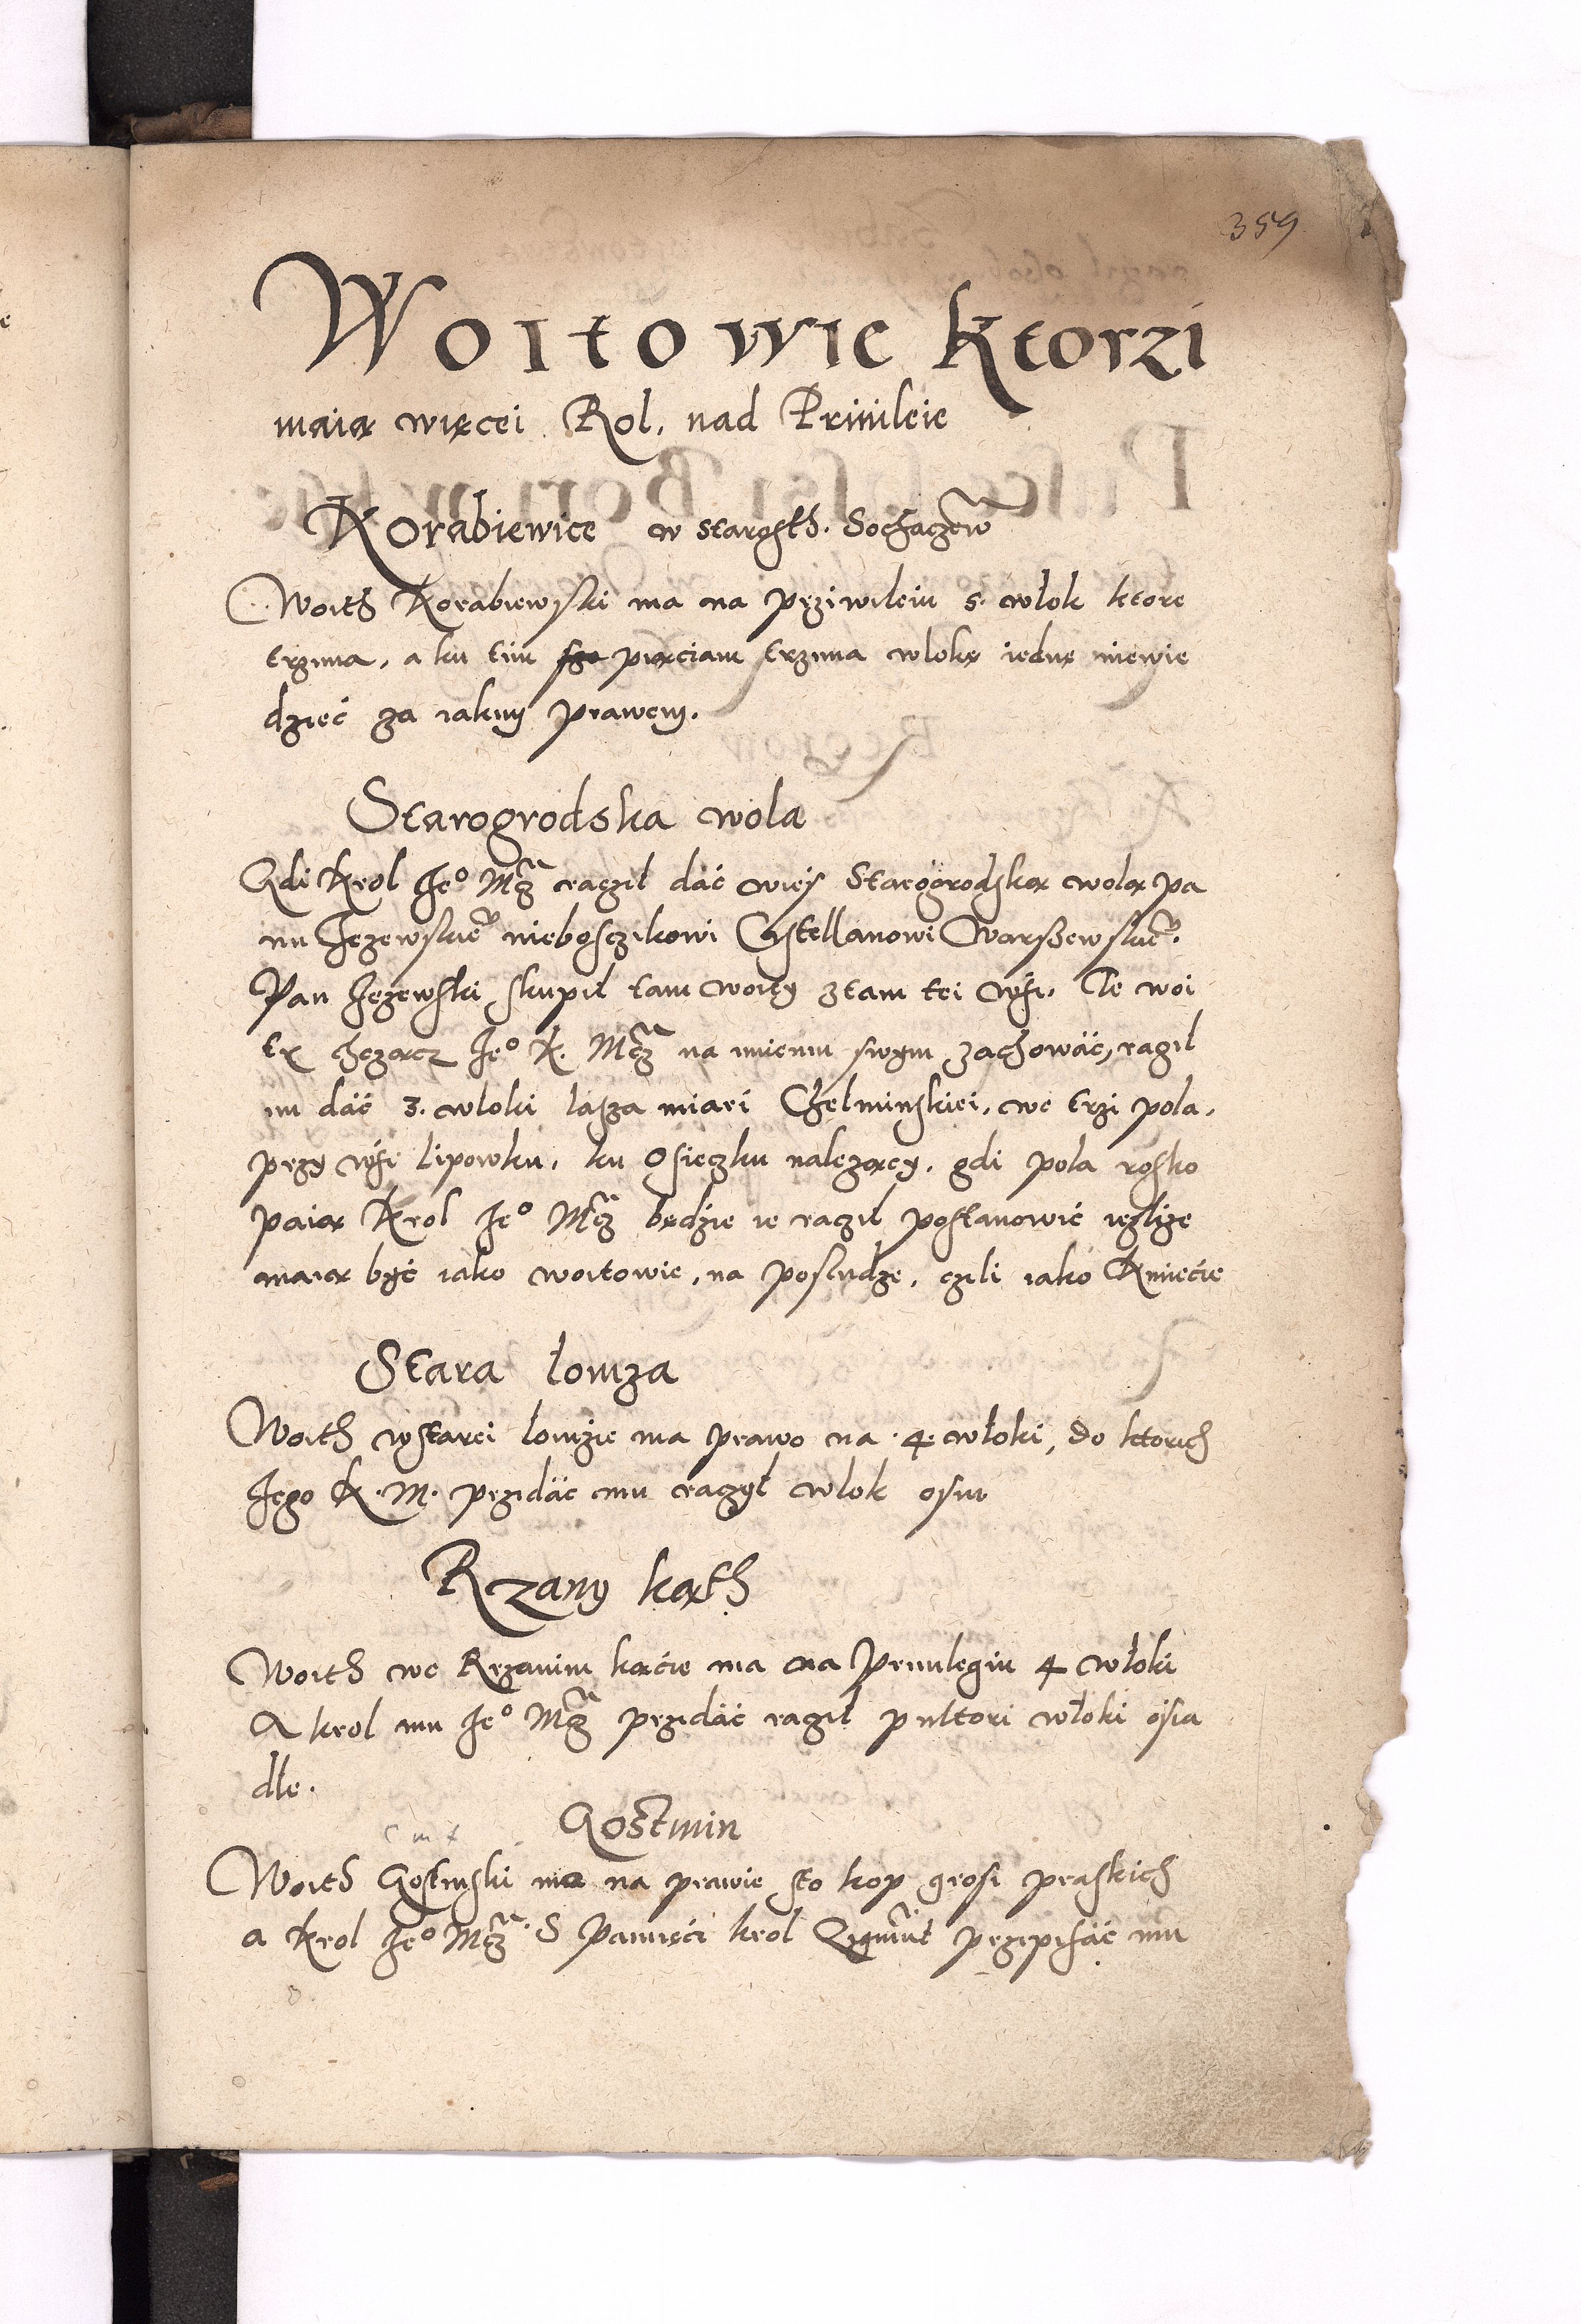 359
Woitowie ktorzi
maią więcei Rol, nad Priuileie
Korabiewice w starosth. Sochaczew
Woith Korabiewski ma na prziwileiu 5. włok ktore
trzima, a ku tim piąciam trzima wlokę iednę niewie
dzieć za iakiy prawem.
Starogrodska wola
Gdi Krol Je° Mcz raczil dać wieś Starogrodską wolą pa
nu Jezewskie° niebosczikowi Castellanowi Warszewskie°.
Pan Jezewski skupil tam woity ztam tei wsi. Te woi
ty chczącz Je° K. Mcz na imieniu swym zachować, raczil
im dać 3. wloki lasza miari Chelminskiei, we trzi pola,
przy wsi Lipowku, ku Osieczku należący, gdi pola rosko
paią Krol Je° Mcz będzie ie raczil postanowić ieslize
maią być iako woitowie, na posludze, czili iako Kmiecie
Stara łomza
Woith wstarei łomzie ma prawo na 4. włoki, do ktorich
Jego K. M. przidać mu raczył wlok osm
Rzany kąth
Woith we Rzanim kącie ma na Priuilegiu 4 włoki
A krol mu Je° Mcz przidać raczil pultori włoki osia
dłe.
Gostmin
Woith Gostinski ma na prawie sto kop grosi praskich
a Krol Je° Mcz S Pamięci krol Zigmunt przipisać mu